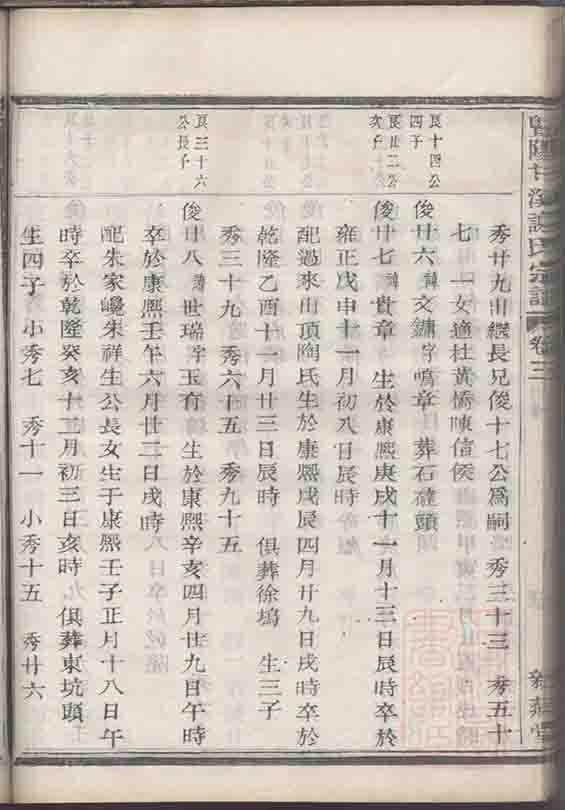 暨陽甘溪謝氏宗譜 卷三
秀廿九出繼長兄俊十七公為嗣 秀三十三 秀五十
七 一女適杜黃橋陳信侯
良十四公
四子
俊廿六 諱文鏞字鳴章 葬石礶頭
良廿二公
次子
俊廿七 諱貴章 生於康熙庚戌十一月十三日辰時卒於
雍正戊申十一月初八日辰時
配過來山頂陶氏生於康熙戊辰四月廿九日戌時卒於
乾隆乙酉十一月廿三日辰時 俱葬徐塢 生三子
秀三十九 秀六十五 秀九十五
良三十六
公長子
俊廿八 諱世瑞字玉有 生於康熙辛亥四月廿九日午時
卒於康熙壬午六月廿二日戌時
配朱家㠟朱祥生公長女生于康熙壬子正月十八日午
時卒於乾隆癸亥十二月初三日亥時 俱葬東坑頭
生四子 小秀七 秀十一 小秀十五 秀廿六